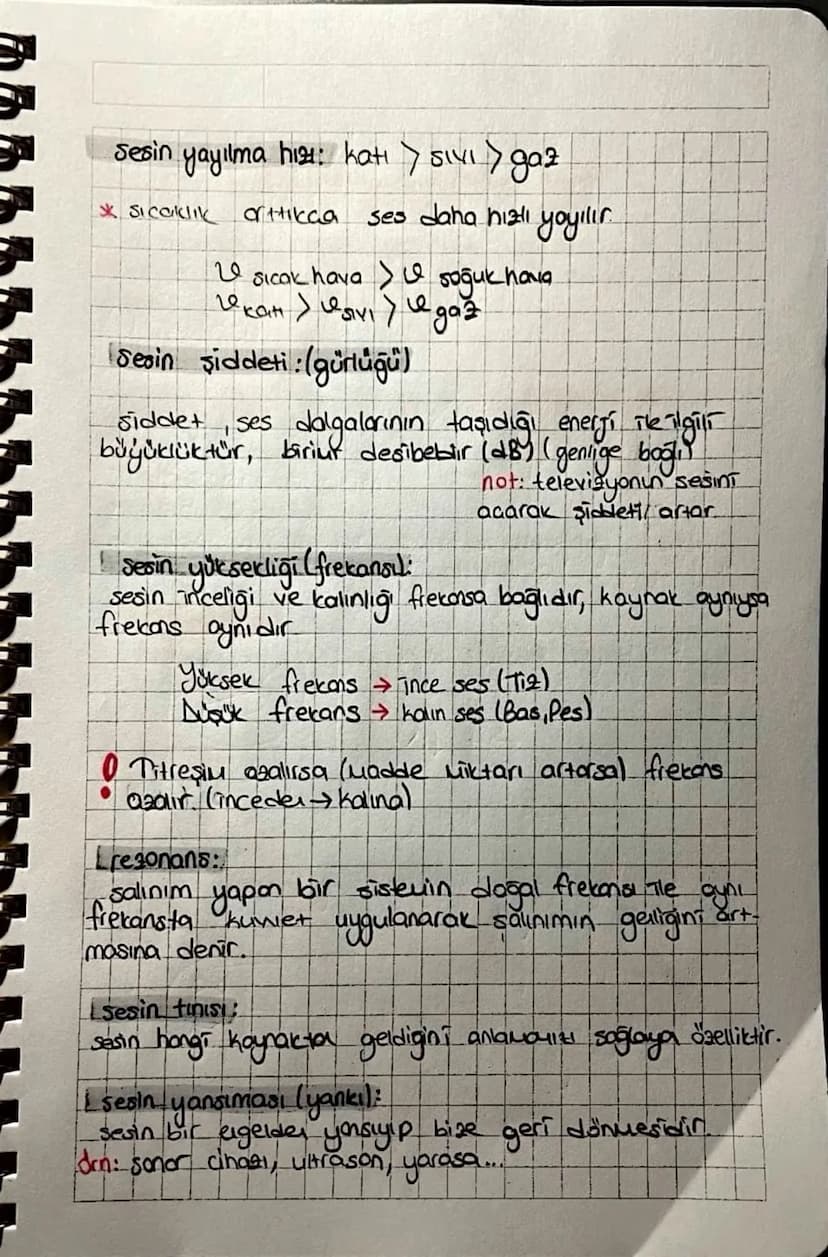 sesin yayılma hızı: katı > sıvı > gaz
* sıcaklık arttıkca ses daha hızlı yayılır.
ν sıcak hava > ν soğuk hava
ν katı > ν sıvı > ν gaz
sesin şiddeti: (gürlüğü)
şiddet, ses dalgalarının taşıdığı enerji ile ilgili
büyüklüktür, birimi desibeldir (dB) (genliğe bağlı)
not: televizyonun sesini
açarak şiddeti artar.
sesin yüksekliği (frekansı):
sesin inceliği ve kalınlığı frekansa bağlıdır, kaynak aynıysa
frekans aynıdır
Yüksek frekans → ince ses (Tiz)
Düşük frekans → kalın ses (Bas, Pes)
! Titreşim azalırsa (madde miktarı artarsa) frekans
azalır. (inceden → kalına)
rezonans:
salınım yapan bir sistemin doğal frekansı ile aynı
frekansta kuvvet uygulanarak salınımın genliğini art-
masına denir.
sesin tınısı:
sesin hangi kaynaktan geldiğini anlamamızı sağlayan özelliktir.
sesin yansıması (yankı):
sesin bir engelden yansıyıp bize geri dönmesidir.
örn: sonar cihazı, ultrason, yarasa...